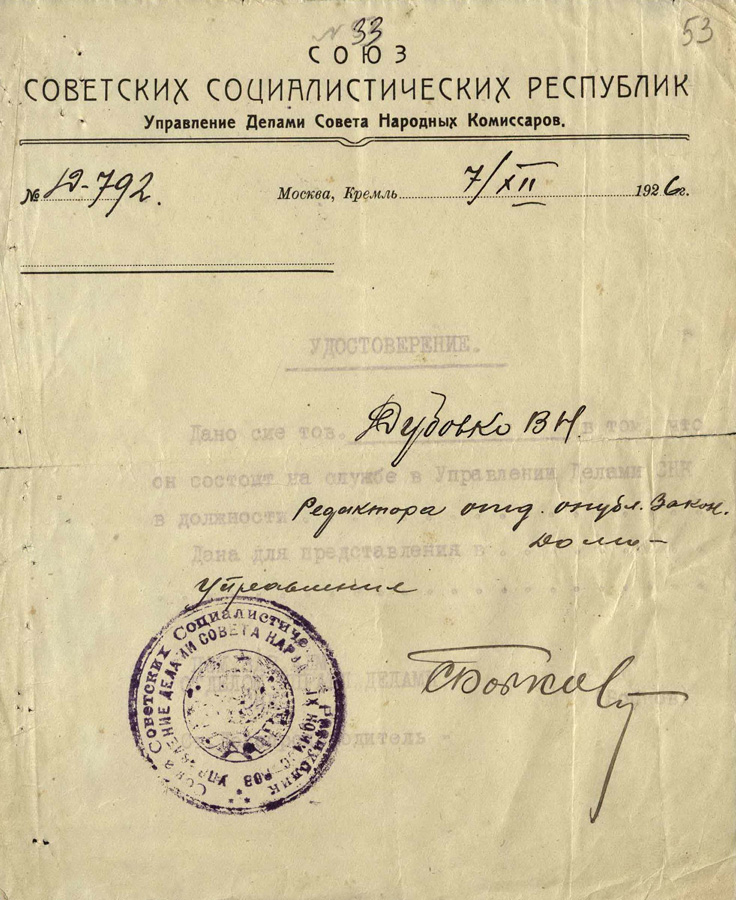 33
53
СОЮЗ
СОВЕТСКИХ СОЦИАЛИСТИЧЕСКИХ РЕСПУБЛИК
Управление Делами Совета Народных Комиссаров.
№ 19-792.
Москва, Кремль 7/XII 1926г.
УДОСТОВЕРЕНИЕ.
Дано сие тов. Дубовко ВН. в том, что
он состоит на службе в Управлении Делами СНК
в должности Редактора отд. опубл. Закон.
Дана для представления в Домо-
Управление
ДЕЛАМИ
Союз Советских Социалистиче Республик
УПРАВЛЕНИЕ ДЕЛАМИ СОВЕТА НАРОД ЫХ КОМИССАРОВ